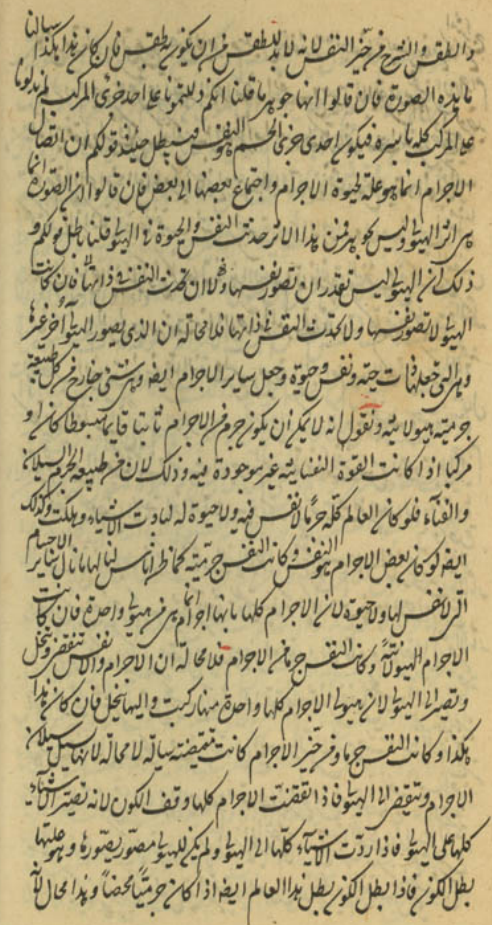 والطقس والشرح من حيز النفس لانه لا بد للطقس من ان يكون مطقس فان كان هذا هكذا سألنا
ما هذه الصورة فان قالوا انها جوهر ما قلنا انكم دللتمونا على احد جزئي المركب ولم تدلونا
على المركب كله باسره فيكون احدى جزئي الجسم هو النفس فيبطل حينئذ قولكم ان اتصال
الاجرام انما هو علة لحيوة الاجرام واجتماع بعضها الى بعض فان قالوا ان الصورة انما
هي اثر الهيولى وليس بجوهر فمن هذا الاثر حدثت النفس والحيوة في الهيولى قلنا باطل قولكم و
ذلك ان الهيولى ليس تقدر ان تصور نفسها ولا ان تحدث النفس من ذاتها فان كانت
الهيولى لا تصور نفسها ولا تحدث النفس من ذاتها فلا محالة ان الذي يصور الهيولى آخر غيرها
وهو الذي جعلها ذات جثة ونفس وحيوة وجعل ساير الاجرام ايضا وهو شيء خارج من كل طبيعة
جرمية هيولانية ونقول انه لا يمكن ان يكون جرم من الاجرام ثابتا قايما مبسوطا كان او
مركبا اذا كانت القوة النفسانية غير موجودة فيه وذلك لان من طبيعة الجرم السيلان
والفناء فلو كان العالم كله جرما لا نفس فيه ولا حيوة له لبادت الاشياء وهلكت وكذلك
ايضا لو كان بعض الاجرام هو النفس وكانت النفس جرمية كما ظن اناس لنالها ما نال ساير الاجسام
التي لا نفس لها ولا حيوة لان الاجرام كلها بانها اجرام انما هي من هيولى واحدة فان كانت
الاجرام الهيولانية وكانت النفس جرما من الاجرام فلا محالة ان الاجرام والانفس تنتقض وتنحل
وتصير الى الهيولى لان هيولى الاجرام كلها واحدة منها ركبت واليها تنحل فان كان هذا
هكذا وكانت النفس جرما من حيز الاجرام كانت منتقضة سيالة لا محالة لانها تسيل سيلان
الاجرام وتنتقض الى الهيولى فاذا انتقضت الاجرام كلها وقف الكون لانه تصير الاشياء
كلها على الهيولى فاذا ردت الاشياء كلها الى الهيولى ولم يكن للهيولى مصور يصورها وهو علتها
بطل الكون فاذا بطل الكون بطل هذا العالم ايضا اذا كان جرميا محضا وهذا محال لانه